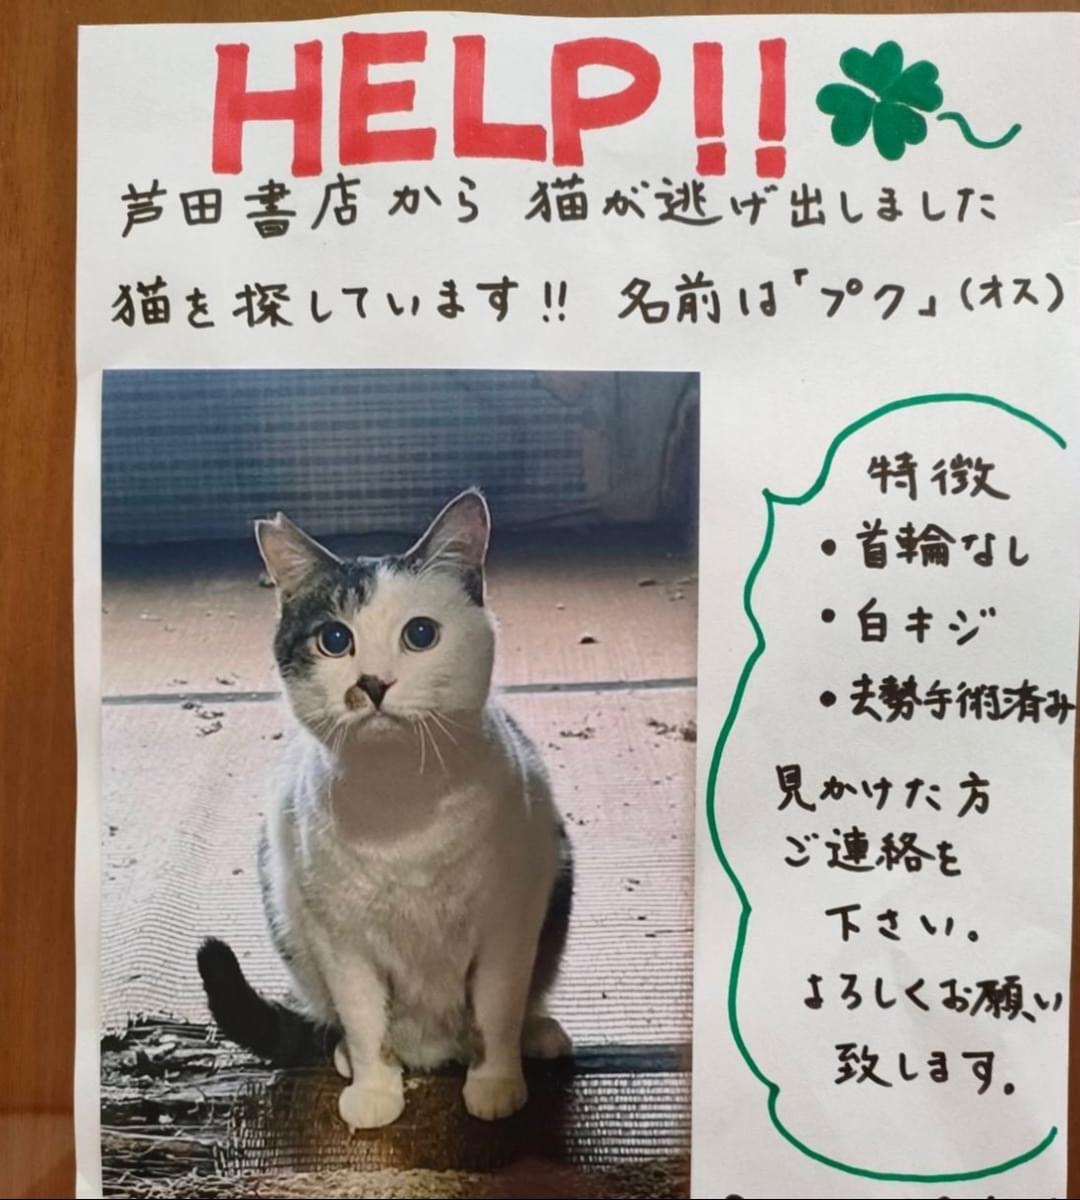 HELP!!
芦田書店から 猫が逃げ出しました
猫を探しています!! 名前は「プク」(オス)
特徴
・首輪なし
・白キジ
・去勢手術済み
見かけた方
ご連絡を
下さい。
よろしくお願い
致します。